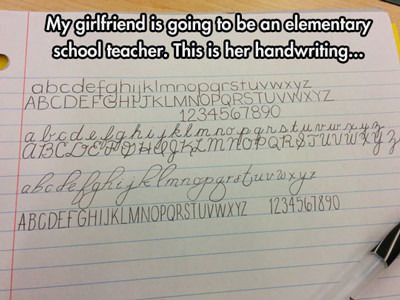 My girlfriend is going to be an elementary
school teacher. This is her handwriting...
abcdefghijklmnopqrstuvwxyz
ABCDEFGHIJKLMNOPQRSTUVWXYZ
1234567890
abcdefghijklmnopqrstuvwxyz
ABCDEFGHIJKLMNOPQRSTUVWXYZ
abcdefghijklmnopqrstuvwxyz
ABCDEFGHIJKLMNOPQRSTUVWXYZ 1234567890